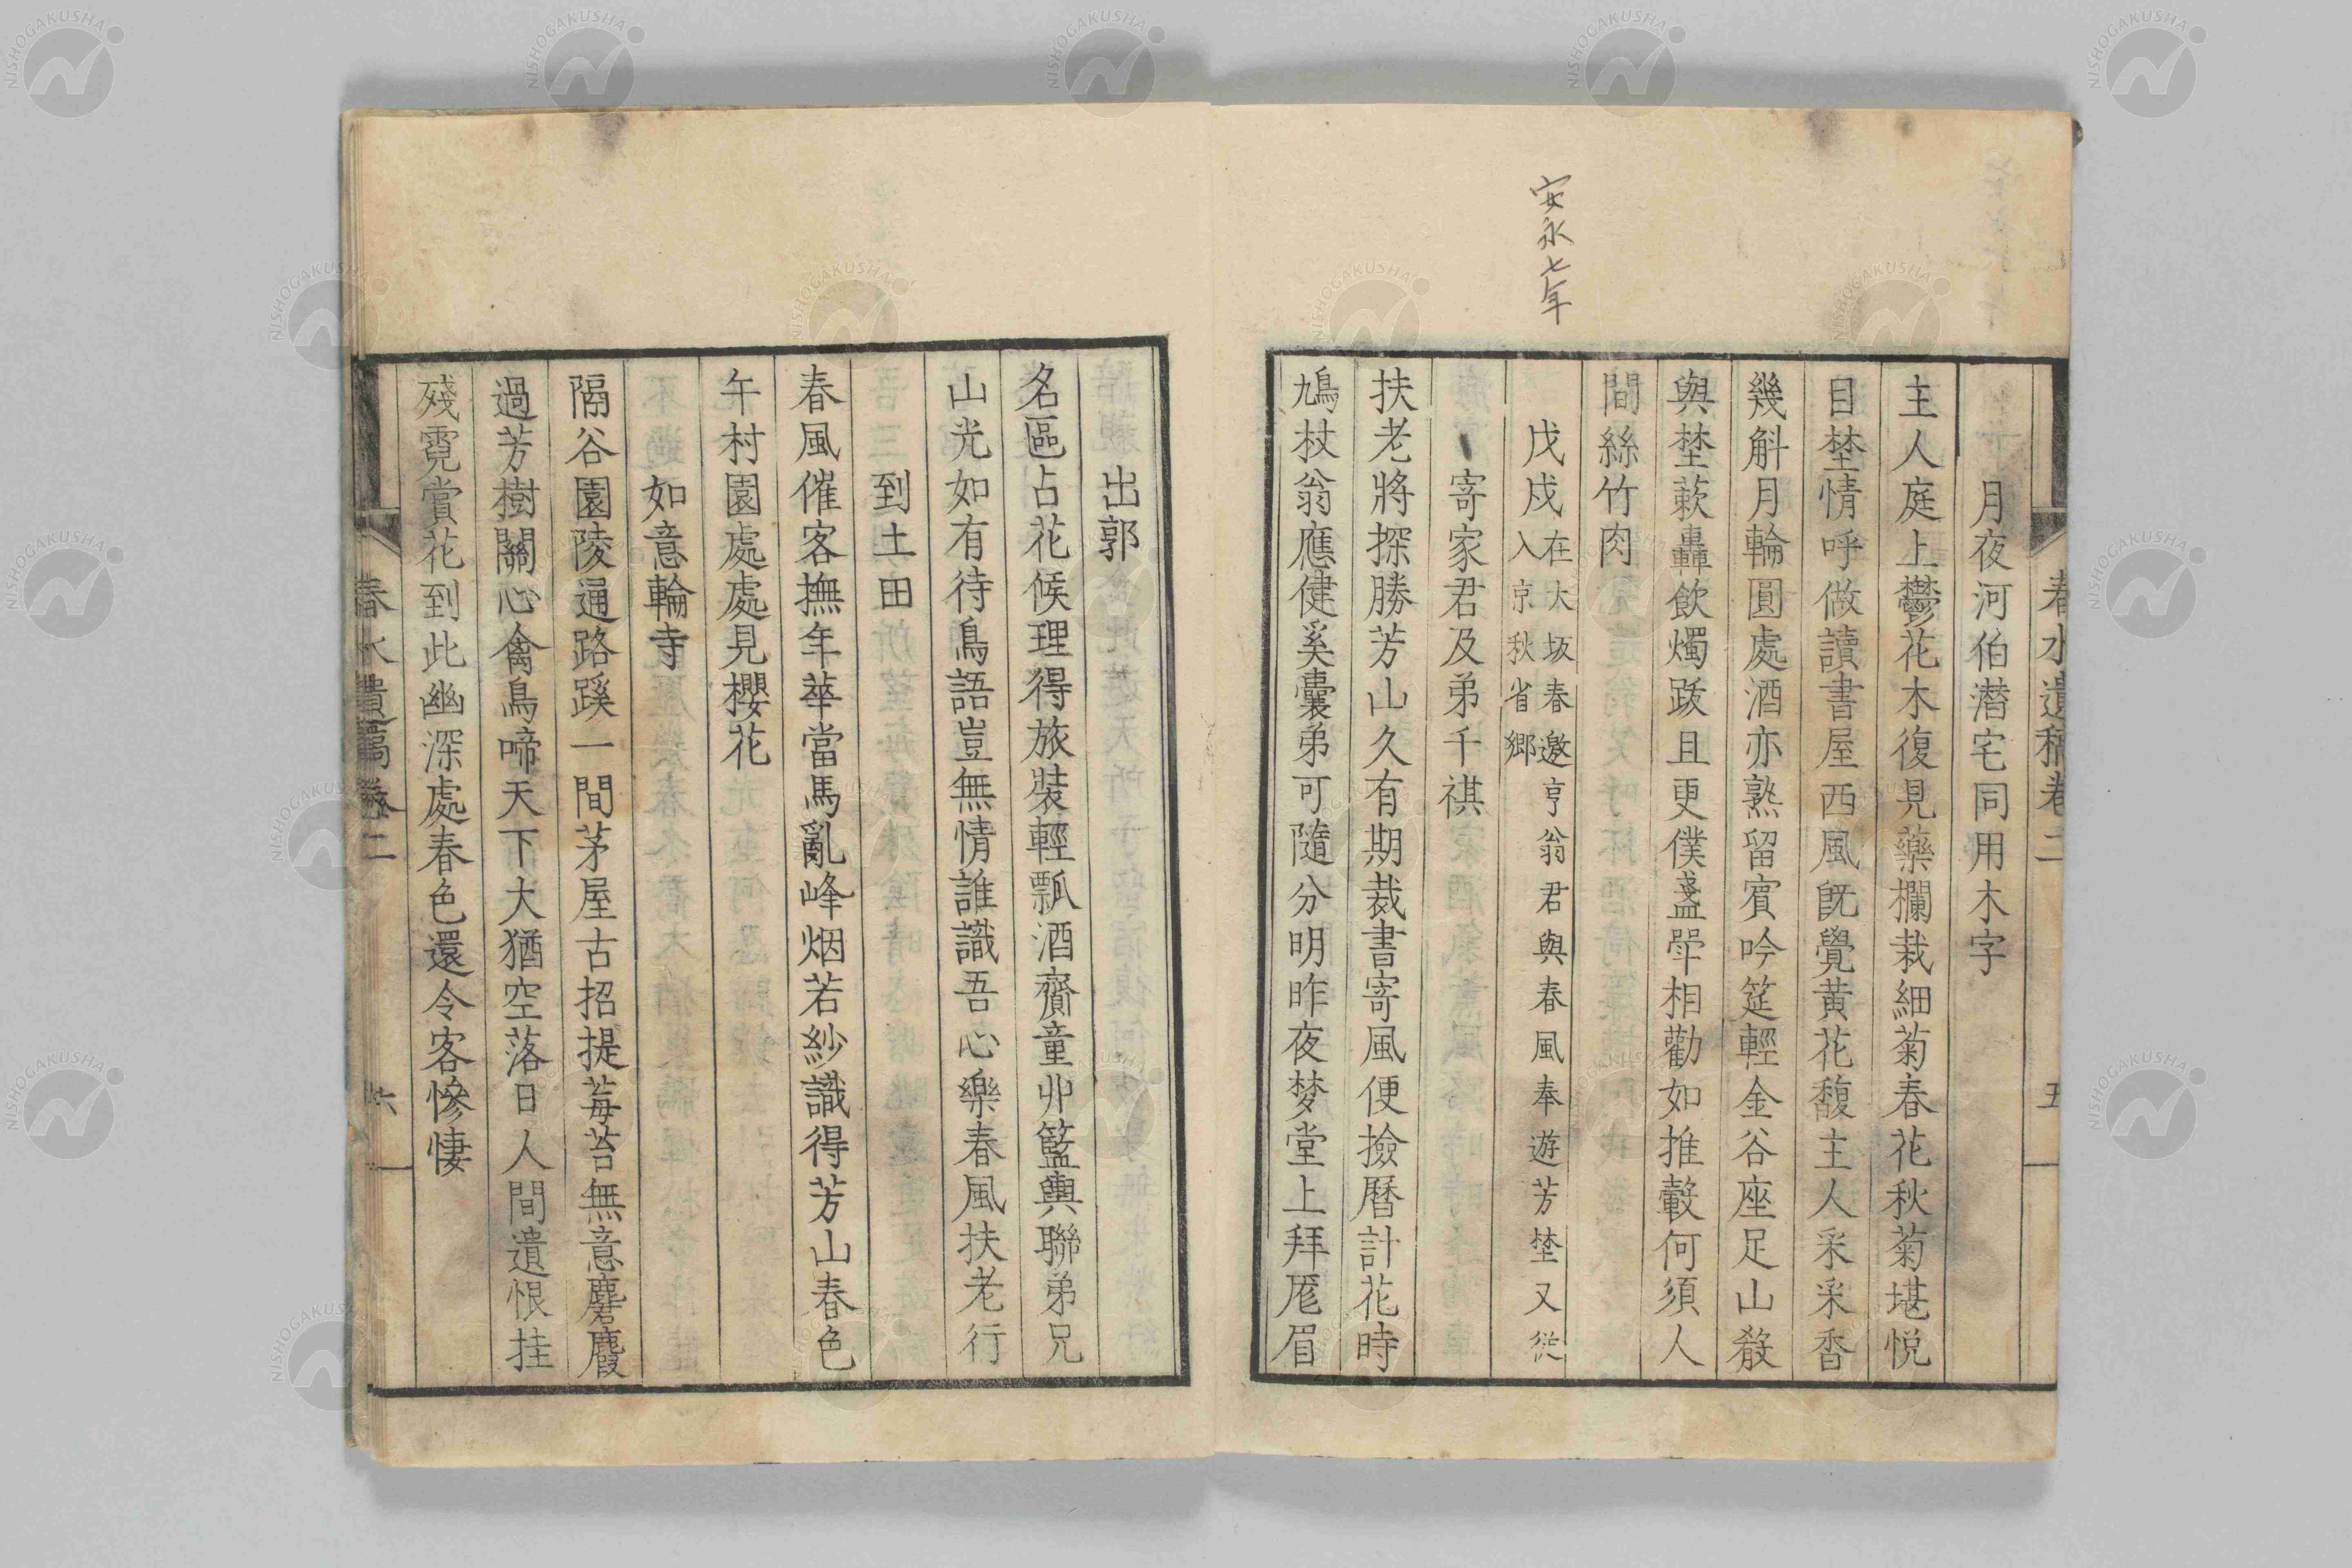 春水遺稿卷二
五
月夜河伯潛宅同用木字
主人庭上鬱花木復見藥欄栽細菊春花秋菊堪悦
目埜情呼做讀書屋西風既覺黄花馥主人采采香
幾斛月輪圓處酒亦熟留賓吟筵輕金谷座足山殽
與埜蔌轟飲燭跋且更僕盞斝相勸如推轂何須人
間絲竹肉
安永七年
戊戌在大坂春邀亨翁君與春風奉遊芳埜又從
入京秋省郷
寄家君及弟千祺
扶老將探勝芳山久有期裁書寄風便撿曆計花時
鳩杖翁應健奚囊弟可隨分明昨夜梦堂上拜厖眉
出郭
名區占花候理得旅裝輕瓢酒齎童丱籃輿聯弟兄
山光如有待鳥語豈無情誰識吾心樂春風扶老行
到土田
春風催客撫年華當馬亂峰烟若紗識得芳山春色
午村園處處見櫻花
如意輪寺
隔谷園陵通路蹊一間茅屋古招提莓苔無意麏麚
過芳樹關心禽鳥啼天下大猶空落日人間遺恨挂
殘霓賞花到此幽深處春色還令客慘悽
春水遺稿卷二
六
NISHOGAKUSHA